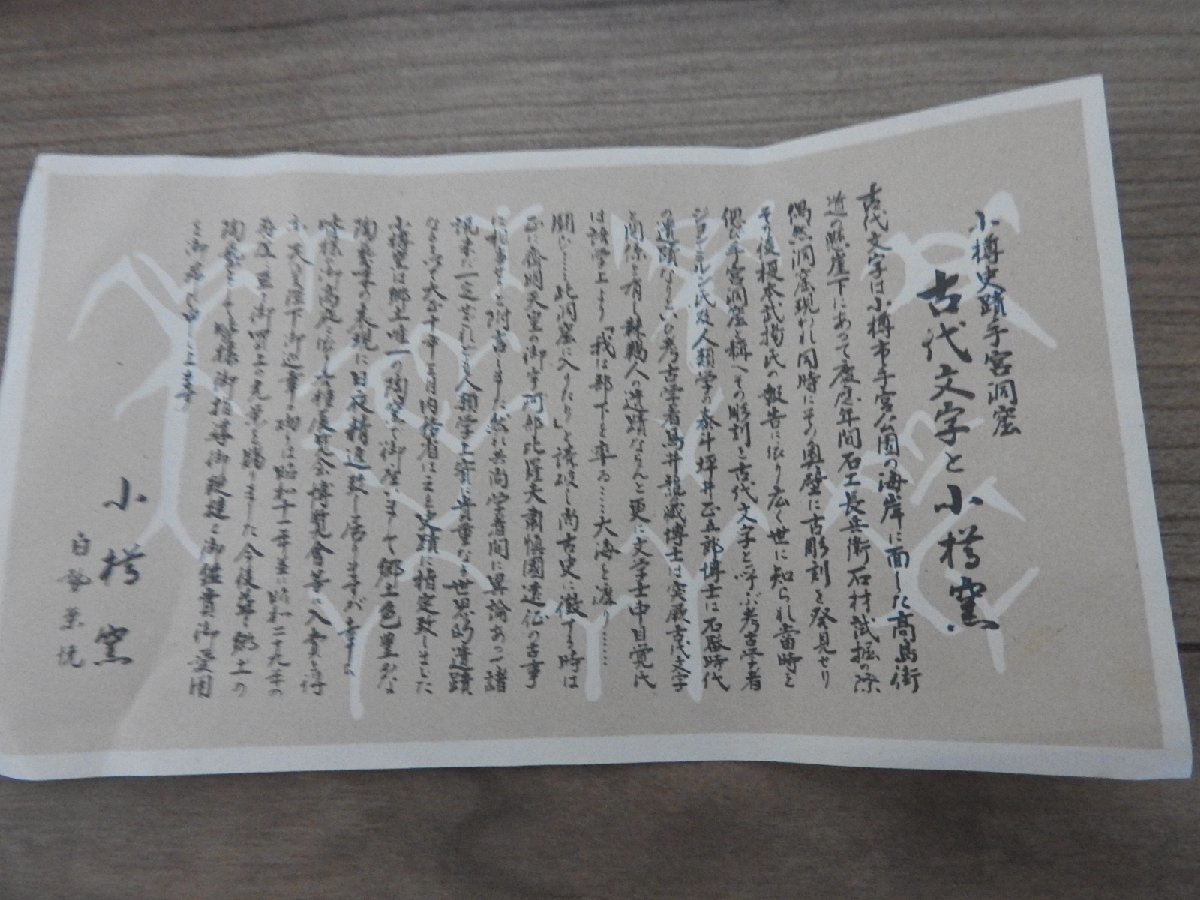 小樽史蹟手宮洞窟
古代文字と小樽窯
古代文字は小樽市手宮公園の海岸に面した高島街
道の断崖下にあって慶応年間石工長兵衛石材試掘の際
偶然洞窟現われ同時にその奥壁に古彫刻を発見せり
その後榎本武揚氏の報告に依り広く世に知られ当時と
手宮洞窟と称へその彫刻を古代文字と呼ぶ考古学者
ジョンミルン氏及人類学の泰斗坪井正五郎博士は石器時代
の遺蹟なりといひ考古学者鳥井龍蔵博士は突厥古代文字
と関係を有し靺鞨人の遺蹟ならんと更に文学士中目覚氏
は語学上より「我は部下を率ゐ……大海を渡り……
闘ひ……此洞窟に入りたり」と読破し尚古史に徴する時は
正に斎明天皇の御宇阿部比羅夫粛慎國遠征の古事
に 附言しました然れ共尚学者間に異論あつて諸
説未だ一定せざれども人類学上実に貴重なる世界的遺蹟
なるを以て大正十年三月内務省は之を史蹟に指定致しました
小樽窯は郷土唯一の陶窯で御座いまして郷土色豊かな
陶芸の表現に日夜精進致し居りますが幸に
皆様の御高庇に依り各種展覧会博覧會等に入賞を得
天皇陛下御巡幸の砌は昭和十一年並に昭和二十九年の
再度 の光栄を賜りました今後益郷土の
陶芸として皆様御指導御鞭撻と御鑑賞御愛用
を御願ひ申し上ます
小樽窯
白勢